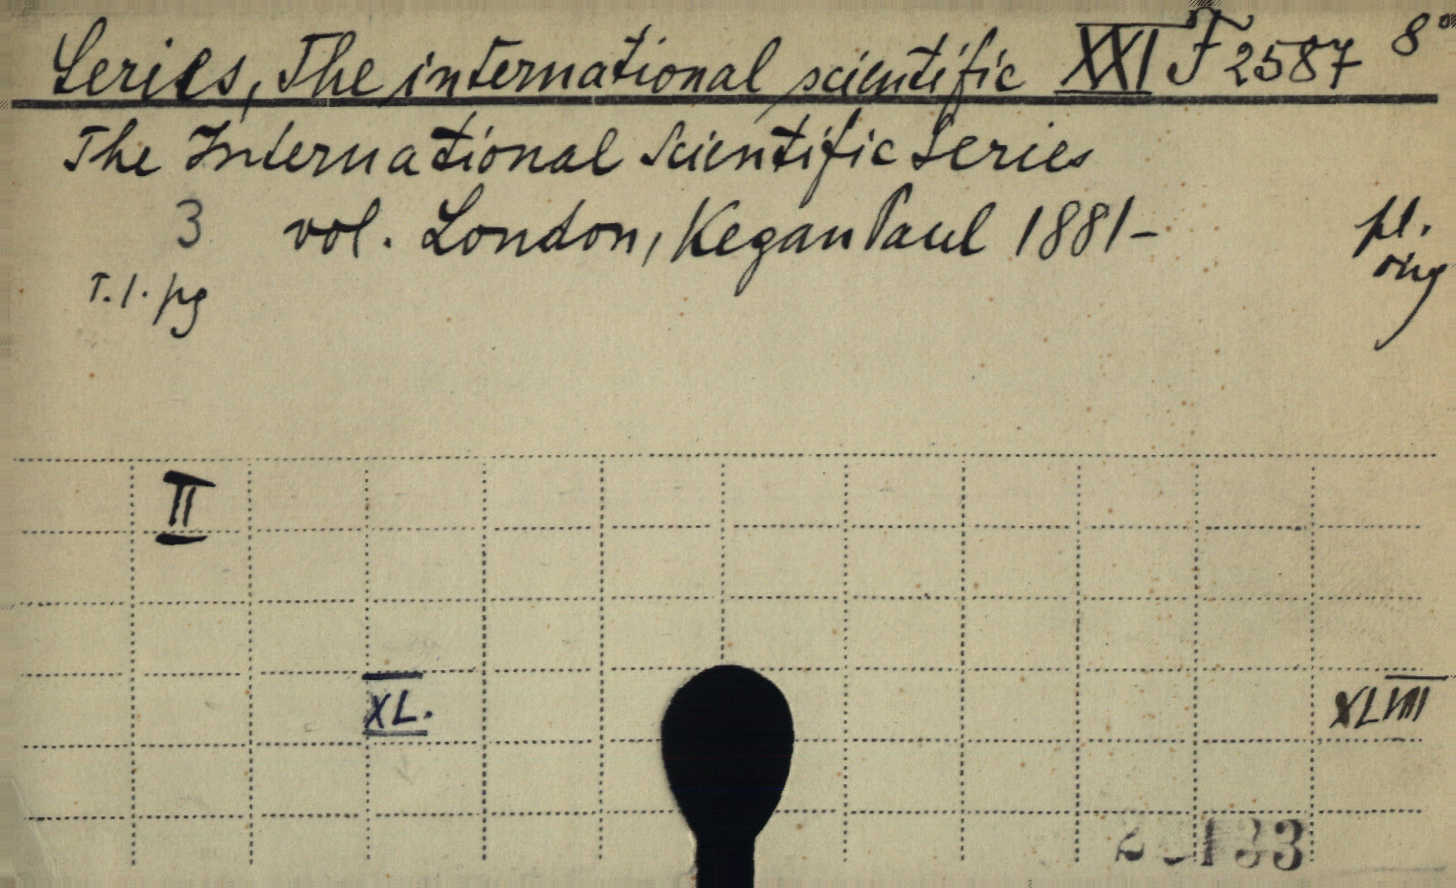 Series, The international scientific XXI F 2587 8°
The International Scientific Series
3 vol. London, Kegan Paul 1881- pl.
T.1. pg orig
II
XL. XLVIII